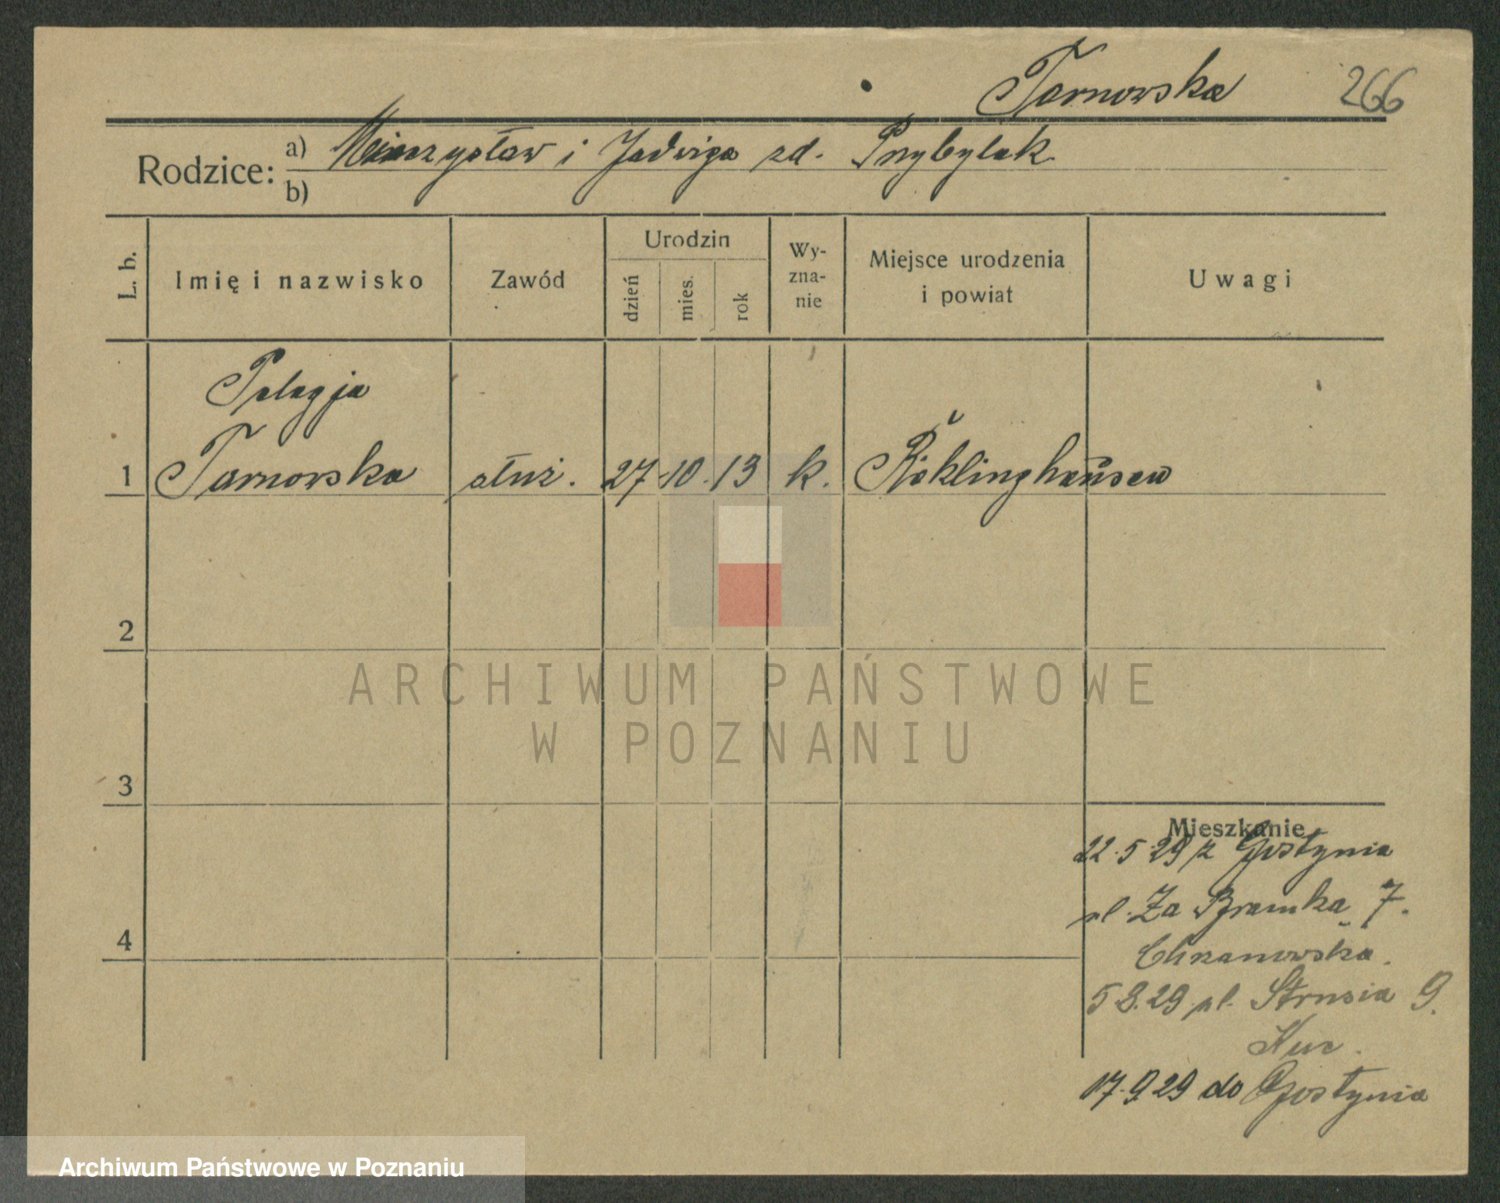 Tarnowska 266
Rodzice: a) Mieczysław i Jadwiga zd. Przybylak
b)
L. b.
Imię i nazwisko
Zawód
Urodzin
dzień
mies.
rok
Wy-
zna-
nie
Miejsce urodzenia
i powiat
Uwagi
Pelagja
1 Tarnowska służ. 27 10. 13 k. Röklinghausen
2
3
4
Mieszkanie
22.5.29 z Gostynia
pl. Za Bramką 7.
Chrzanowska.
5.8.29 pl. Strusia 9.
Kuc.
17.9.29 do Gostynia
ARCHIWUM PAŃSTWOWE
W POZNANIU
Archiwum Państwowe w Poznaniu